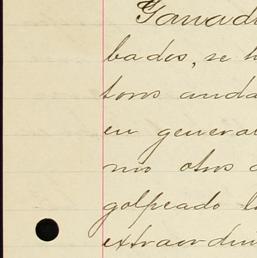 Ganad
bados, se h
toros anda
en general
mio otros
golpeado l
extraordin